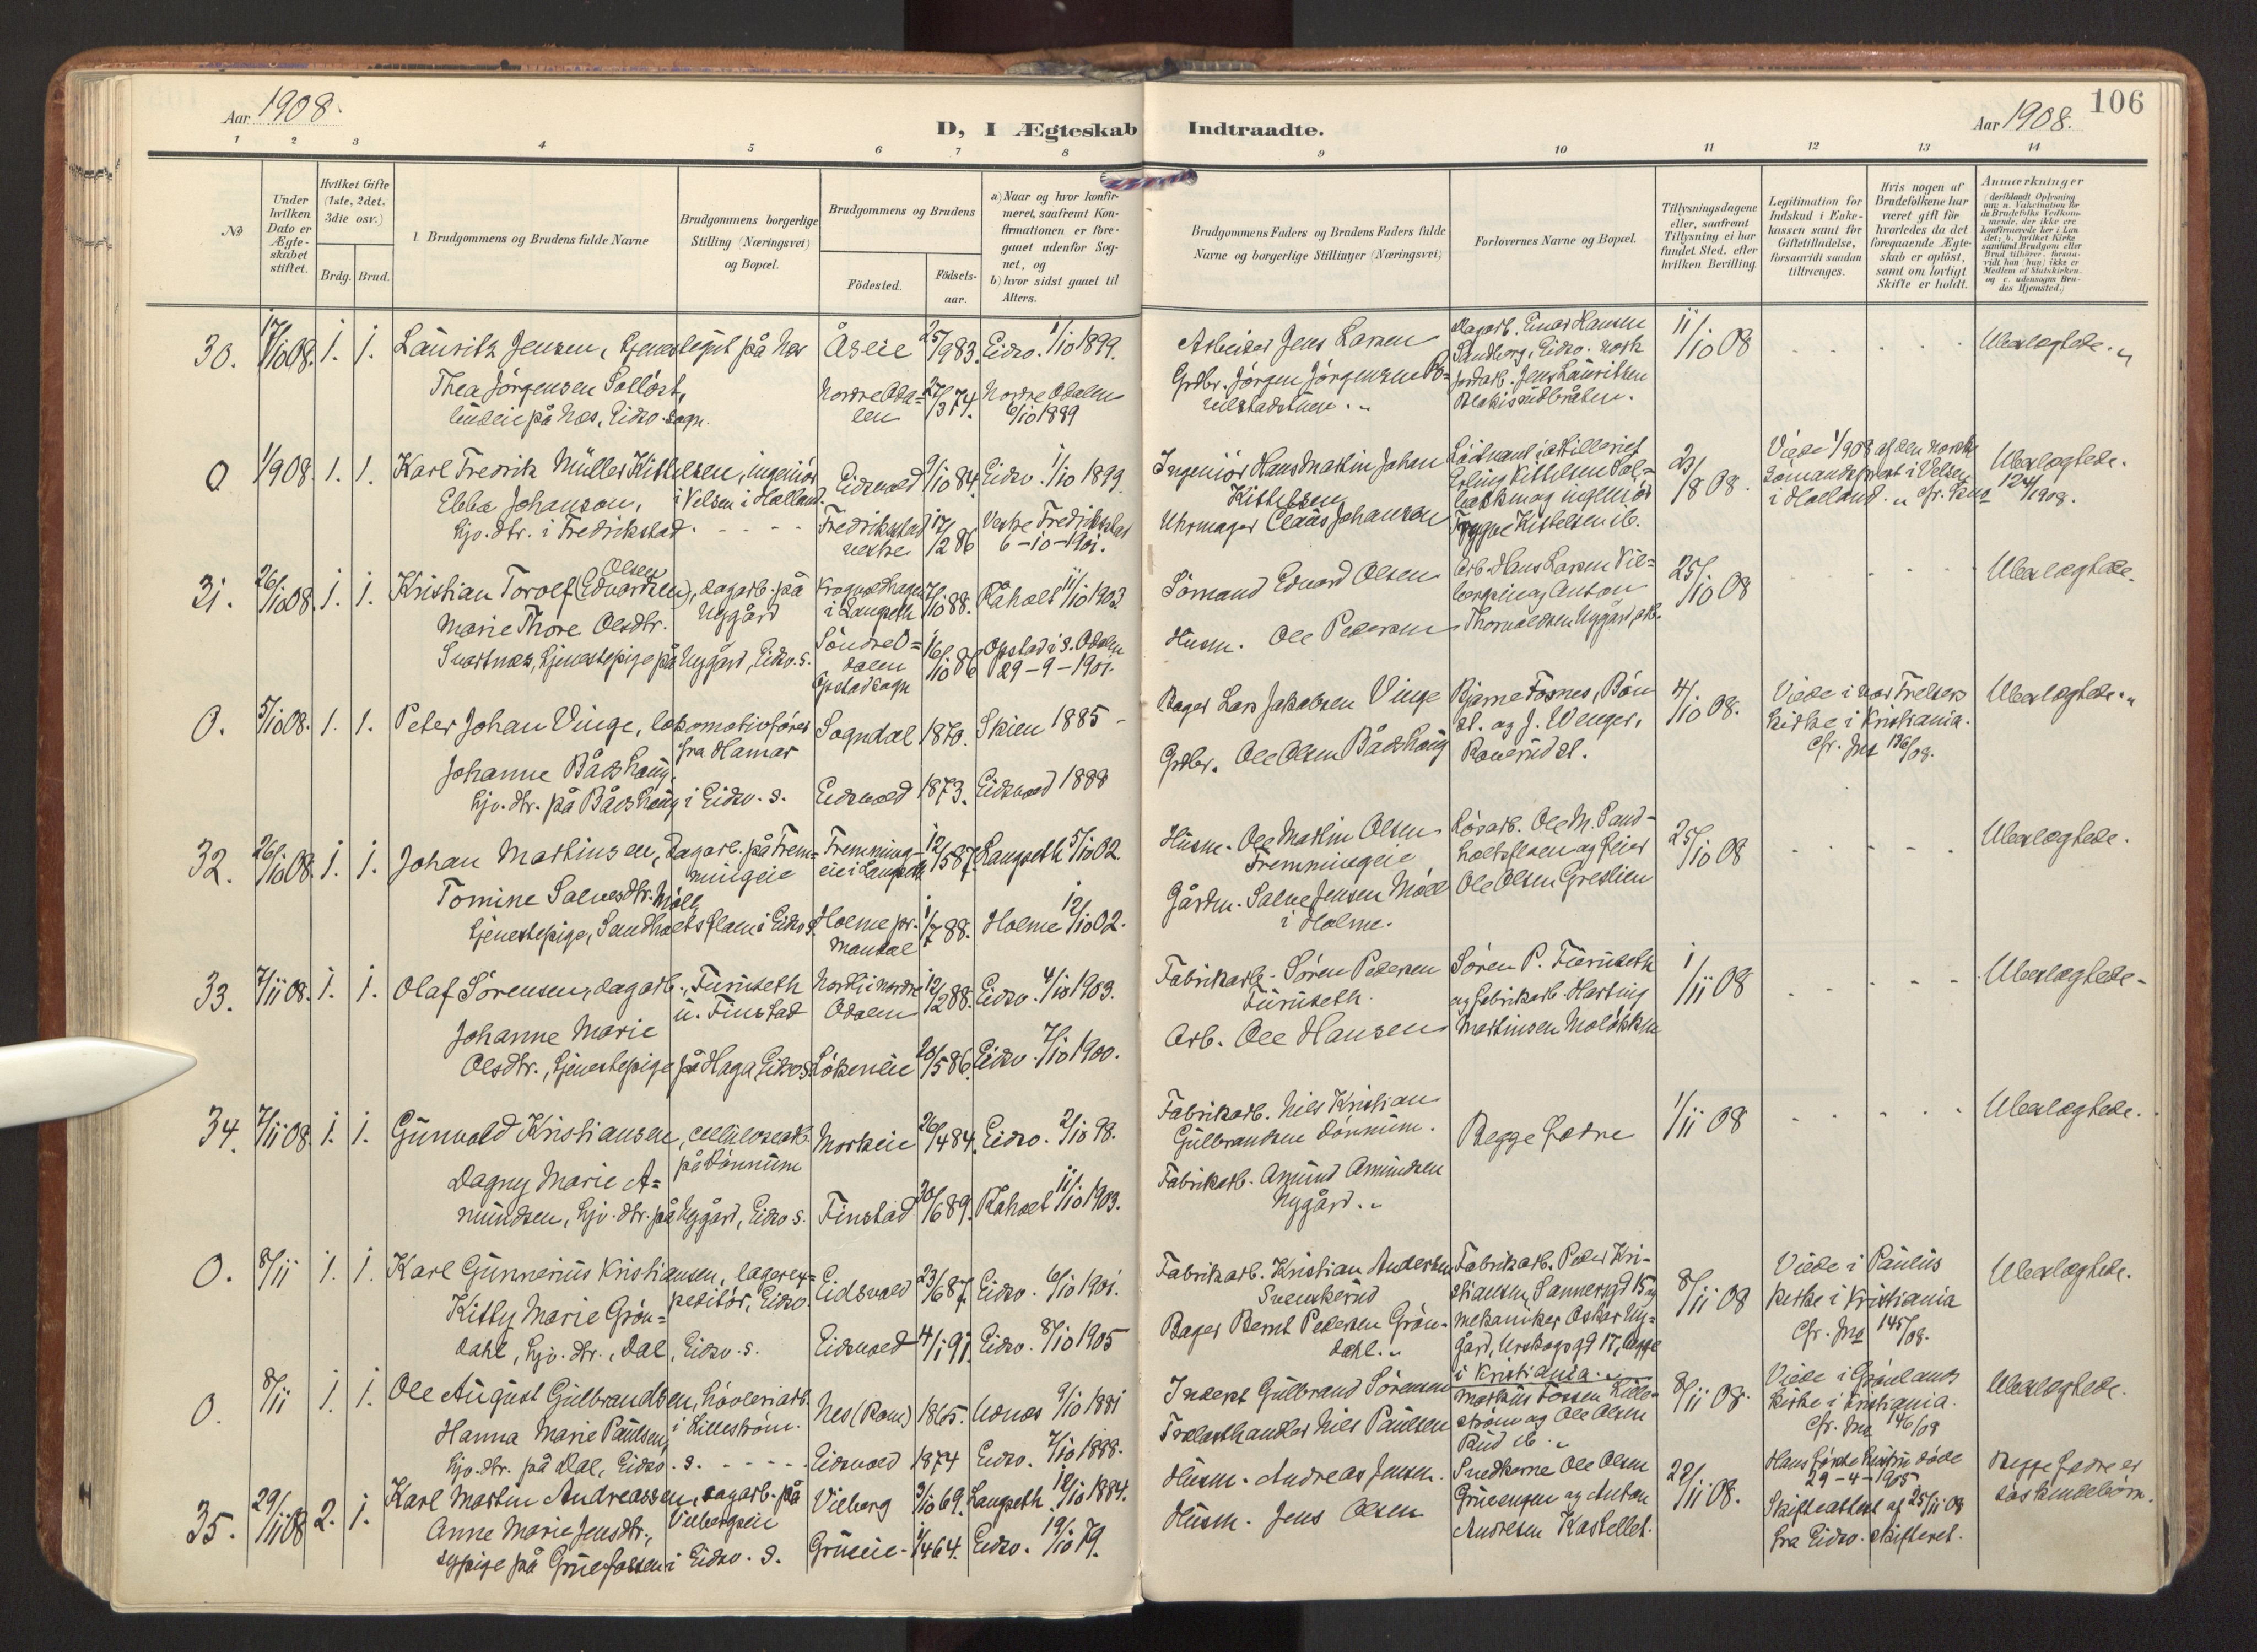 Aar 1908.
D, I Ægteskab Indtraadte.
Aar 1908.
106
1 2 3 4 5 6 7 8 9 10 11 12 13 14
No
Under hvilken Dato er Ægteskabet stiftet.
Hvilket Gifte (1ste, 2det, 3die osv.)
Brdg. Brud.
Brudgommens og Brudens fulde Navne
Brudgommens borgerlige Stilling (Næringsvei) og Bopæl.
Brudgommens og Brudens
Födested.
Födsels-aar.
a) Naar og hvor konfirmeret, saafremt Konfirmationen er foregaaet udenfor Sognet, og
b) hvor sidst gaaet til Alters.
Brudgommens Faders og Brudens Faders fulde Navne og borgerlige Stillinger (Næringsvei)
Forlovernes Navne og Bopæl.
Tillysningsdagene eller, saafremt Tillysning ei har fundet Sted, efter hvilken Bevilling.
Legitimation for Indskud i Enkekassen samt for Giftetilladelse, forsaavidt saadan tiltrænges.
Hvis nogen af Brudefolkene har været gift før hvorledes da det foregaaende Ægteskab er opløst, samt om lovligt Skifte er holdt.
Anmærkninger
30. 17/10 08. 1. 1. Lauritz Jensen, tjenestegut på Næs Åseie 25/9 83. Eidsv. 1/10 1899. Arbeider Jens Larsen Dagarb. Einar Hansen Sandberg, Eidsv. 11/10 08 Ubeslægtede.
Thea Jörgensen Solløst, Nordre Odalen 27/3 74. Nordre Odalen 6/10 1889 Grdbr. Jörgen Jörgensen jordarb. Jens Lauritsen
på Næs, Eidsv. sogn.
0 1/9 08. 1. 1. Karl Fredrik Müller Kittelsen, ingeniör i Velsen i Holland. Eidsvold 9/10 84. Eidsv. 1/10 1899. Ingeniör Hans Martin Johan Kittelsen Löitnant i artilleriet Erling Kittelsen 23/8 08. Viede 1/9 08 af den norske Sömandsprest i Velsen i Holland. cfr. Jns 124/1908. Ubeslægtede.
Ebba Johanson, hjv. dtr. i Fredrikstad. Fredrikstad vestre 17/12 86 Vestre Fredrikstad 6-10-1901. Uhrmager Claas Johanson og ingeniör Trygve Kittelsen ib.
31. 26/10 08. 1. 1. Kristian Torolf (Edvardsen) Olsen, dagarb. på Nygård i Langseth 7/10 88. Råholt 11/10 1903 Sömand Edvard Olsen Arb. Hans Larsen og Anton 25/10 08 Ubeslægtede.
Marie Thore Olsdtr. Svartnæs, tjenestepige på Nygård, Eidsv. s. Söndre Odalen Opstad sogn 16/10 86 Opstad i S. Odalen 29-9-1901. Husm. Ole Pedersen Thorvaldsen Nygård
0. 5/10 08. 1. 1. Peter Johan Vinge, lokomotivförer fra Hamar Sogndal 1870. Skien 1885 Bager Lars Jakobsen Vinge Bjarne Fosnes, Bön st. og J. Wenger, 4/10 08. Viede i Vor Frelsers kirke i Kristiania. cfr. Jns 136/08. Ubeslægtede.
Johanne Bådshaug, hjv. dtr. på Bådshaug i Eidsv. s. Eidsvold 1873. Eidsvold 1888 Grdbr. Ole Olsen Bådshaug
32. 26/10 08. 1. 1. Johan Martinsen, dagarb. på Fremmingeie Fremmingeie i Langseth 12/5 87. Langseth 5/10 02. Husm. Ole Martin Olsen Fremmingeie Lösarb. Ole M. Sandholtsflaen og feier 25/10 08 Ubeslægtede.
Tomine Salvesdtr. Möll, tjenestepige, Sandholtsflaen i Eidsv. s. Holme pr. Mandal 1/7 88. Holme 12/10 02. Gårdm. Salve Jensen Möll i Holme. Ole Olsen Greslien
33. 7/11 08. 1. 1. Olaf Sörensen, dagarb., Furuseth u. Finstad Nordli i nordre Odalen 12/12 88. Eidsv. 4/10 1903. Fabrikarb. Sören Pedersen Furuseth. Sören P. Furuseth 1/11 08 Ubeslægtede.
Johanne Marie Olsdtr., tjenestepige på Haga, Eidsv. s. Lökeneie 28/5 86. Eidsv. 7/10 1900. Arb. Ole Hansen og fabrikarb. Martinsen
34. 7/11 08. 1. 1. Gunvald Kristiansen, cellulosearb. på Dönnum Morkeie 26/4 84. Eidsv. 2/10 98. Fabrikarb. Nils Kristian Gulbrandsen Dönnum. Begge fædre 1/11 08 Ubeslægtede.
Dagny Marie Amundsen, hjv. dtr. på Nygård, Eidsv. s. Finstad 30/6 89. Råholt 11/10 1903. Fabrikarb. Amund Amundsen Nygård.
0. 8/11 1. 1. Karl Gunnerius Kristiansen, lagerexpeditör, Eidsv. Eidsvold 23/6 87. Eidsv. 6/10 1901. Fabrikarb. Kristian Andersen Svenskerud Fabrikarb. Peder Kristiansen, Sannergt 15 og 8/11 08 Viede i Paulus kirke i Kristiania cfr. Jns 145/08. Ubeslægtede.
Kitty Marie Gröndahl, hjv. dtr., Dal, Eidsv. s. Eidsvold 4/1 91. Eidsv. 8/10 1905 Bager Bernt Pedersen Gröndahl. mekaniker Oskar Nygård, Urskogsgt 17, begge i Kristiania.
0. 8/11 1. 1. Ole August Gulbrandsen, hövleriarb. i Lilleström. Nes (Rom.) 1865. Udnæs 9/10 1881 Inderst Gulbrand Sörensen Markus Fossen Lilleström og Ole Olsen Rud ib. 8/11 08. Viede i Grönlands kirke i Kristiania. cfr. Jns 146/08 Ubeslægtede.
Hanna Marie Paulsen, hjv. dtr. på Dal, Eidsv. s. Eidsvold 1874 Eidsv. 7/10 1888. Trælasthandler Nils Paulsen
35. 29/11 08 2. 1. Karl Martin Andreassen, dagarb. på Vilbergseie Vilberg 3/10 69. Langseth 12/10 1884. Husm. Andreas Jensen. Snedkerne Ole Olsen Grueengen og Anton Andresen Kastellet. 22/11 08. Hans förste hustru döde 29-4-1905 Skifteattest af 25/11 08 fra Eidsv. skifteret. Begge fædre er søskendebörn.
Anne Marie Jensdtr., sypige på Gruefossen i Eidsv. s. Grueeie 1/4 64. Eidsv. 19/10 79. Husm. Jens Olsen